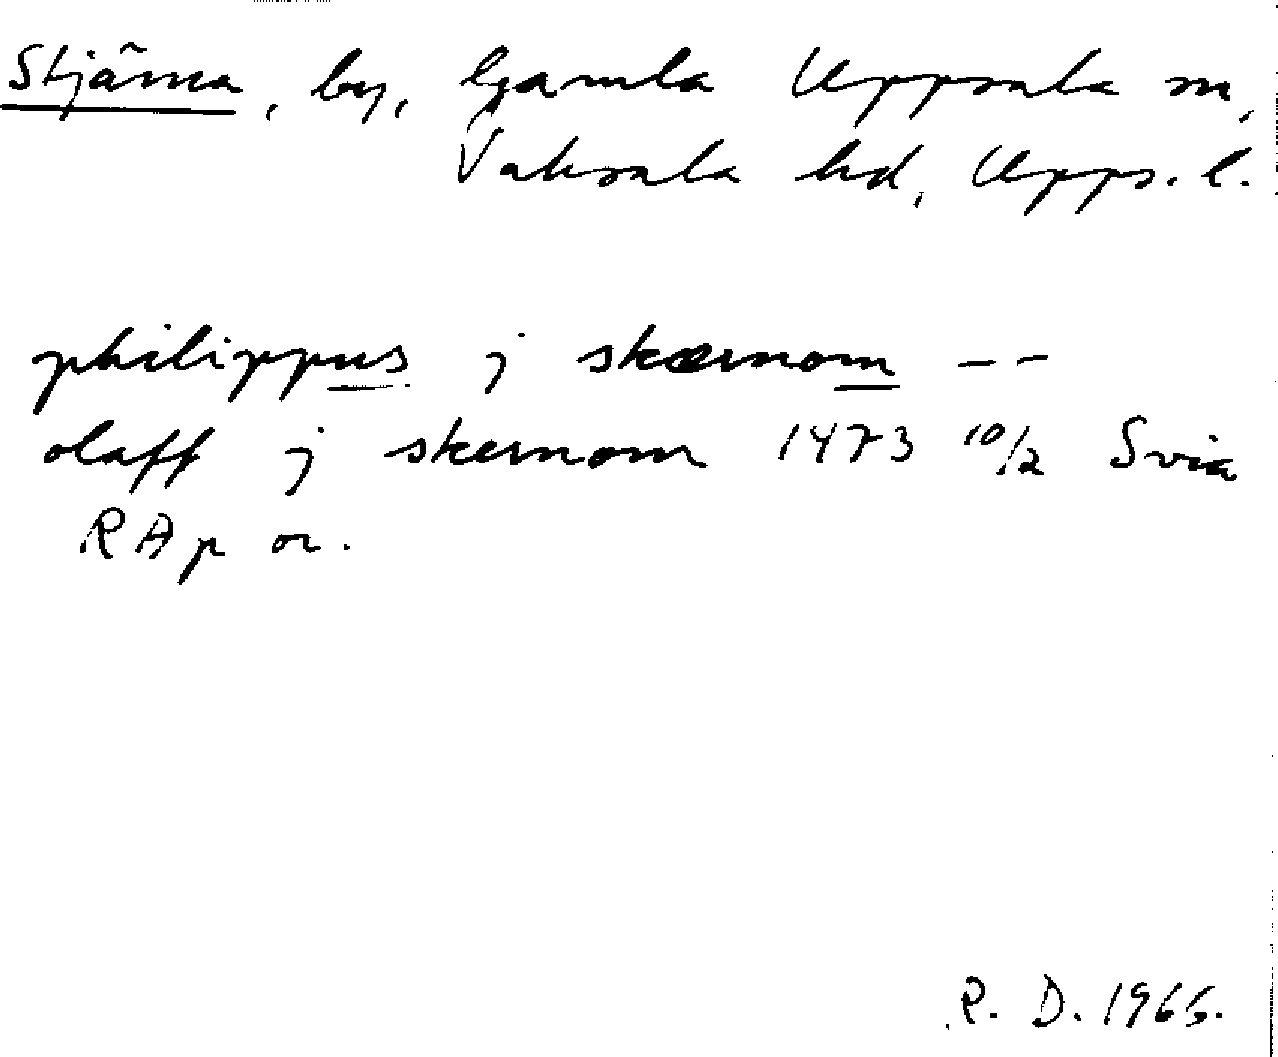 Skjärna, by, Gamla Uppsala sn,
Vaksala hd, Upps. l.
philippus j skærnom – –
olaff j skernom 1473 10/2 Svia
RAp or.
R. D. 1965.